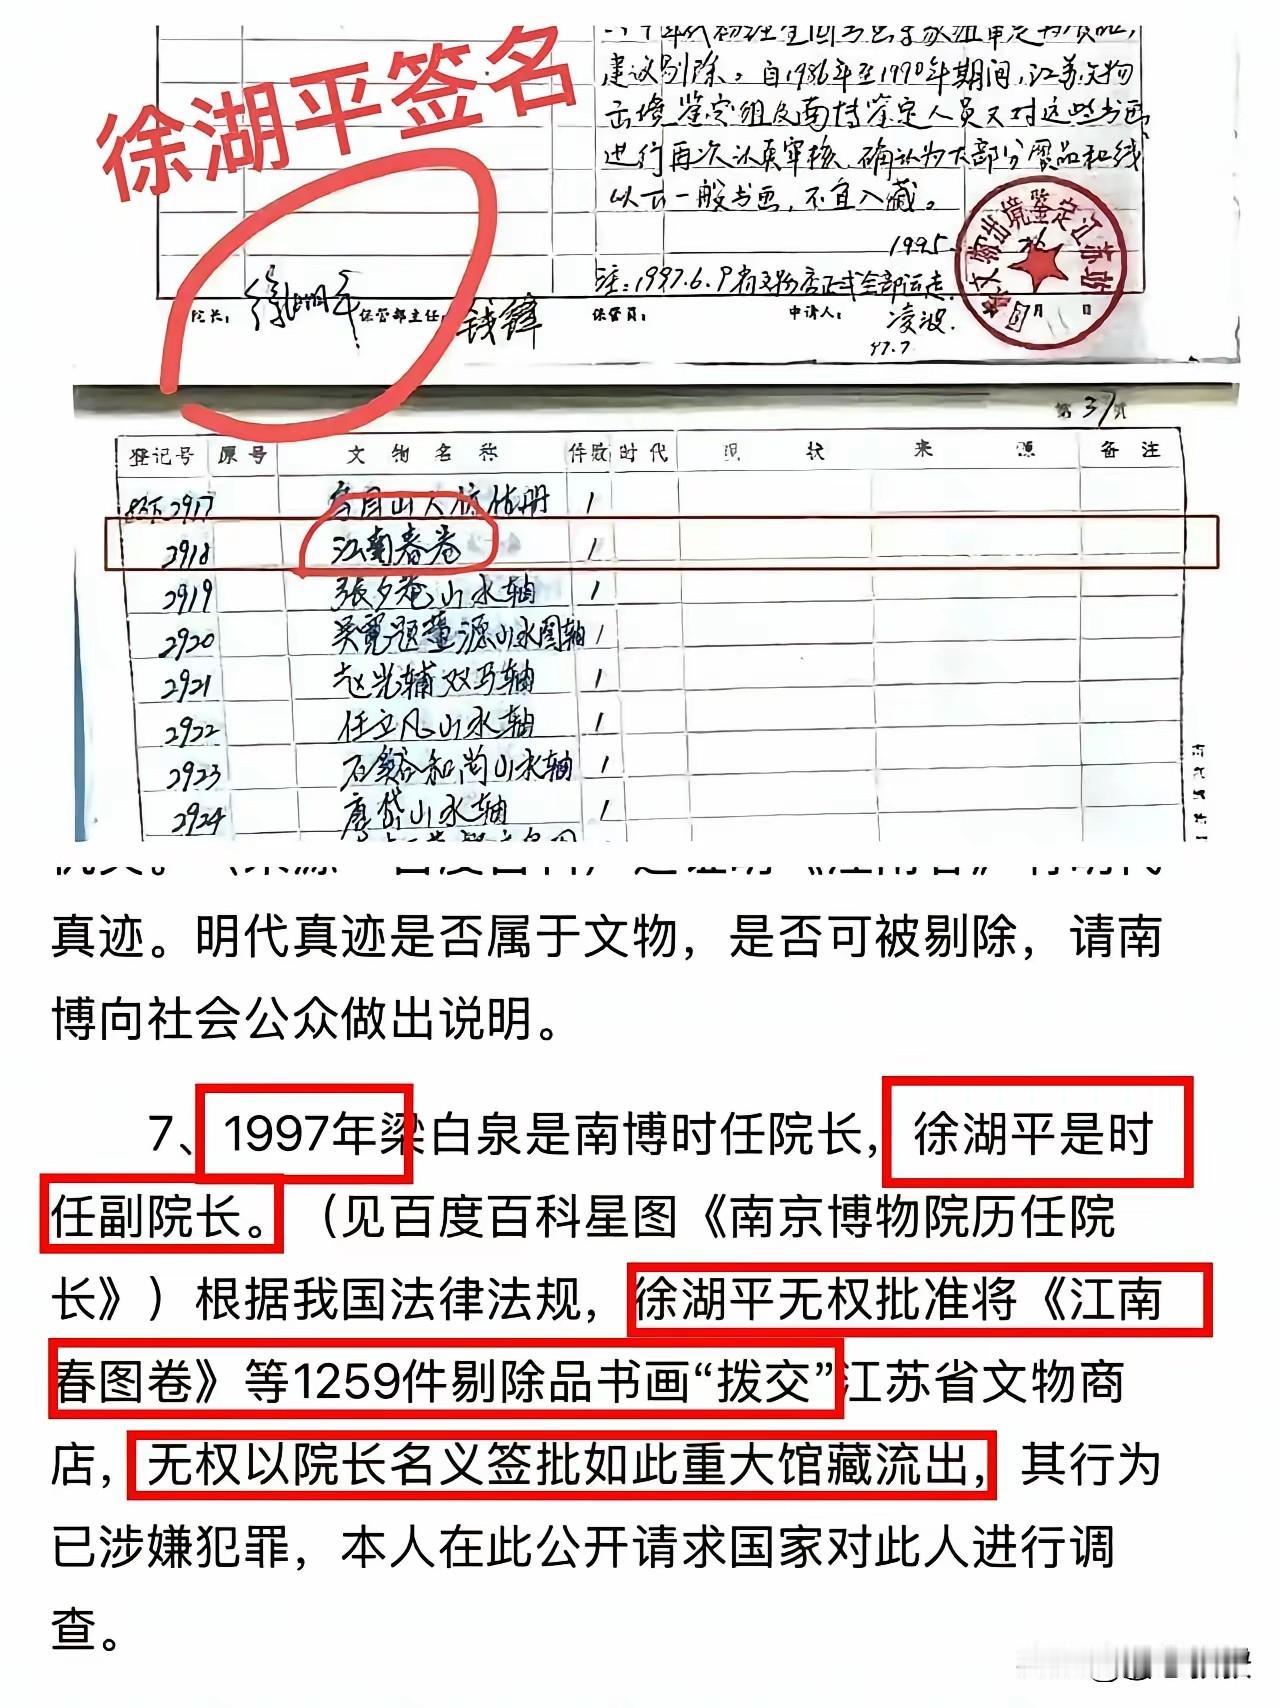 徐湖平签名
建议剔除。自1986年至1990年期间,江苏文物
出境鉴定组及南博鉴定人员又对这些书画
进行再次认真审核,确认为大部分赝品和线
以下一般书画,不宜入藏。
1995.
注:1997.6.9有文物店正式全部运走.
院长: 徐湖平 保管部主任: 钱锋 保管员: 申请人: 凌波.
97.7
月 日
第37页
登记号 原号 文物名称 件数 时代 现状 来源 备注
2917 1
2918 江南春卷 1
2919 张夕庵山水轴 1
2920 吴宽题董源山水图轴 1
2921 赵光辅双马轴 1
2922 任立凡山水轴 1
2923 石溪和尚山水轴 1
2924 唐岱山水轴 1
真迹。明代真迹是否属于文物,是否可被剔除,请南
博向社会公众做出说明。
7、1997年梁白泉是南博时任院长,徐湖平是时
任副院长。（见百度百科星图《南京博物院历任院
长》）根据我国法律法规,徐湖平无权批准将《江南
春图卷》等1259件剔除品书画“拨交”江苏省文物商
店,无权以院长名义签批如此重大馆藏流出,其行为
已涉嫌犯罪,本人在此公开请求国家对此人进行调
查。